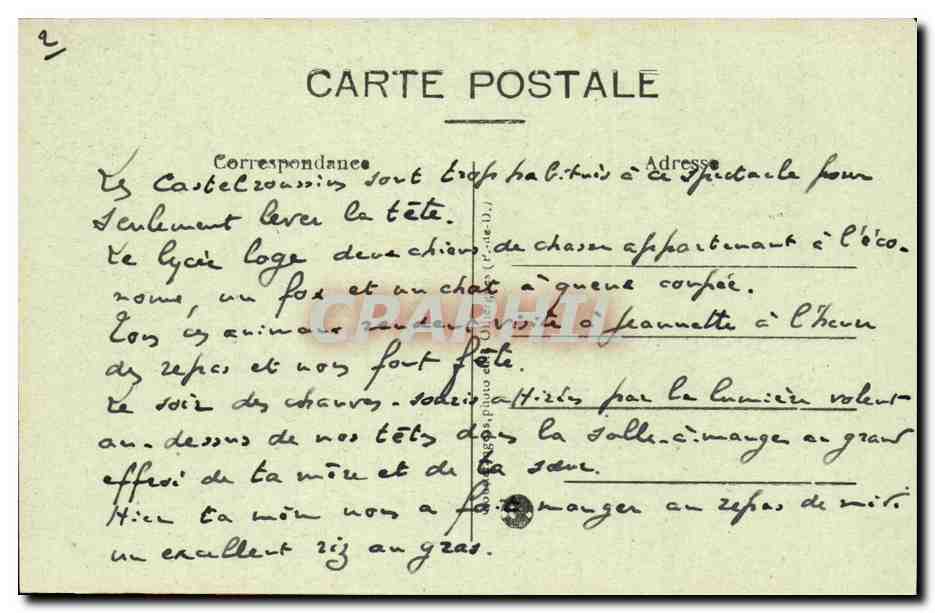 2
CARTE POSTALE
Correspondance
Adresse
Les Castelroussins sont trop habitués à ce spectacle pour
seulement lever la tête.
Le lycée loge deux chiens de chasse appartenant à l'éco-
nome, un fox et un chat à queue coupée.
Tous ces animaux rendent visite à Jeannette à l'heure
des repas et nous font fête.
Le soir des chauves-souris attirées par la lumière volent
au-dessus de nos têtes dans la salle-à-manger au grand
effroi de ta mère et de ta sœur.
Hier ta mère nous a fait manger au repas de midi
un excellent riz au gras.
CRAPHIL
photo édit. Olliergues (P.-de-D.)